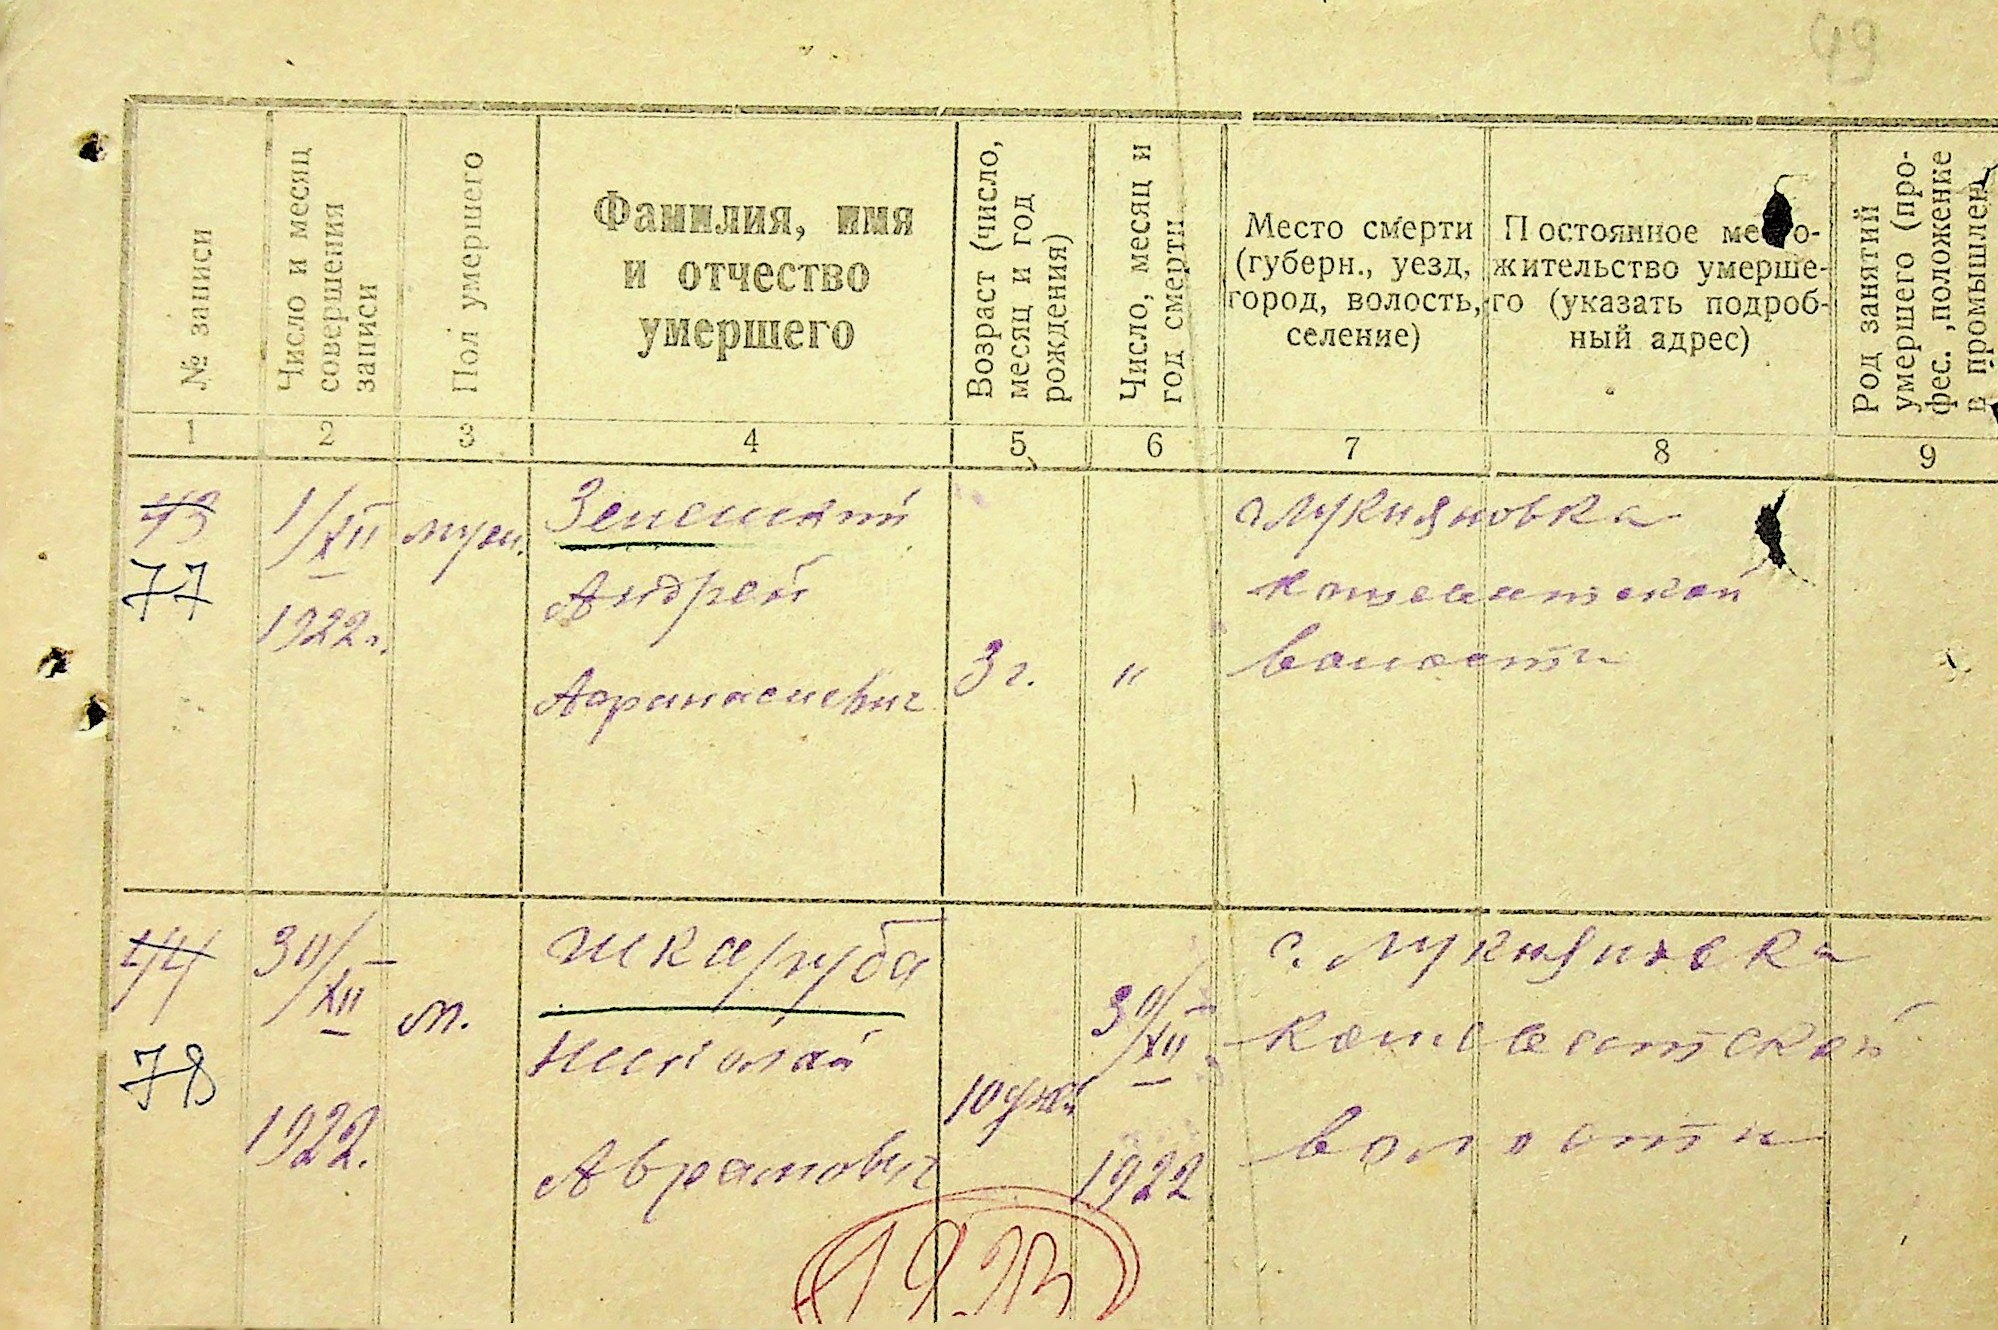 49
№ записи
Число и месяц
совершения
записи
Пол умершего
Фамилия, имя
и отчество
умершего
Возраст (число,
месяц и год
рождения)
Число, месяц и
год смерти
Место смерти
(губерн., уезд,
город, волость,
селение)
Постоянное место-
жительство умерше-
го (указать подроб-
ный адрес)
Род занятий
умершего (про-
фес., положение
в промышлен
1 2 3 4 5 6 7 8 9
43
77
1/XII
1922г.
муж.
Андрей
Афанасиевич
3 г.
"
с. Лукияновка
волости
44
78
30/XII
1922.
м.
Шкаруба
Николай
Аврамович
10
30/XII
1922
с. Лукияновка
волости
1923